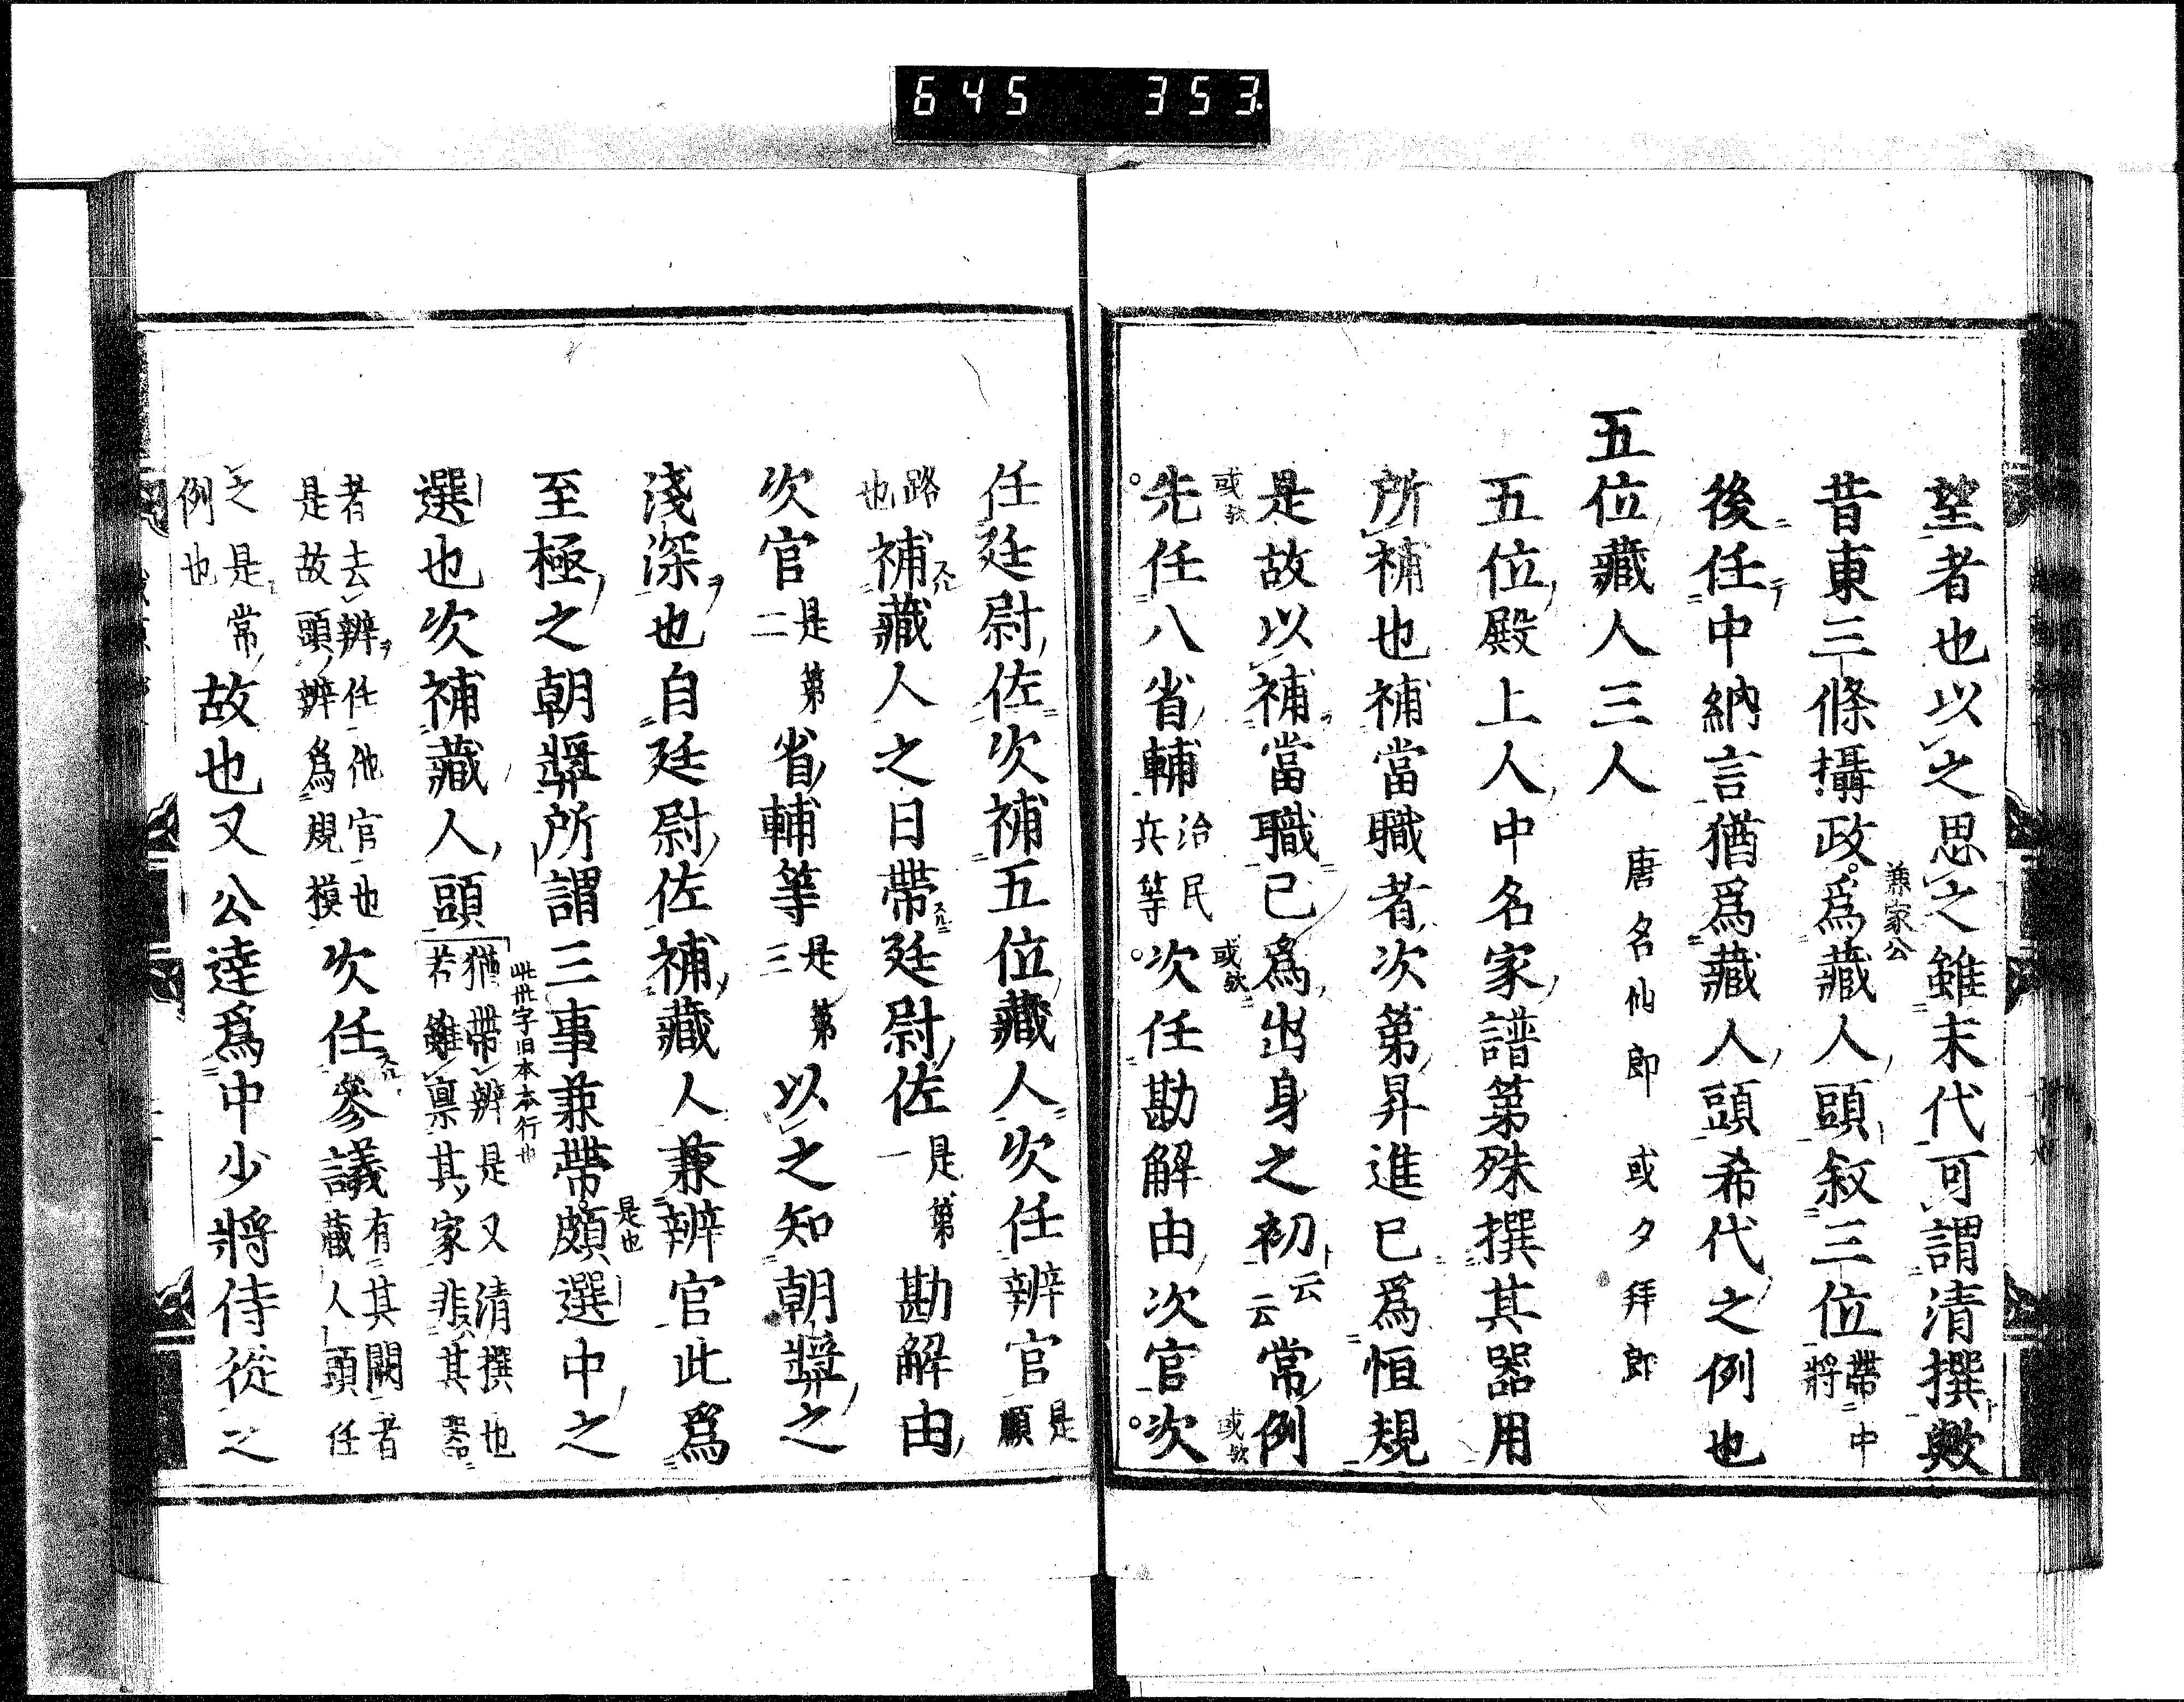 645 353
望者也以之思之雖末代可謂清撰歟
昔東三條攝政爲藏人頭敘三位帶中將
兼家公
後任中納言猶爲藏人頭希代之例也
五位藏人三人 唐名仙郎 或夕拜郎
五位殿上人中名家譜第殊撰其器用
所補也補當職者次第昇進已爲恒規
是故以補當職已爲出身之初云云常例
或歟 或歟 或歟
先任八省輔治民兵等次任勘解由次官次
任廷尉佐次補五位藏人次任辨官是順
路也補藏人之日帶廷尉佐是第一勘解由
次官是第二省輔等是第三以之知朝奬之
淺深也自廷尉佐補藏人兼辨官此爲
是也
至極之朝奬所謂三事兼帶頗選中之
此廿字旧本本行也
選也次補藏人頭猶帶辨是又清撰也若雖禀其家非其器
者去辨任他官也是故頭辨爲規摸次任參議有其闕者藏人頭任
之是常例也故也又公達爲中少將侍從之